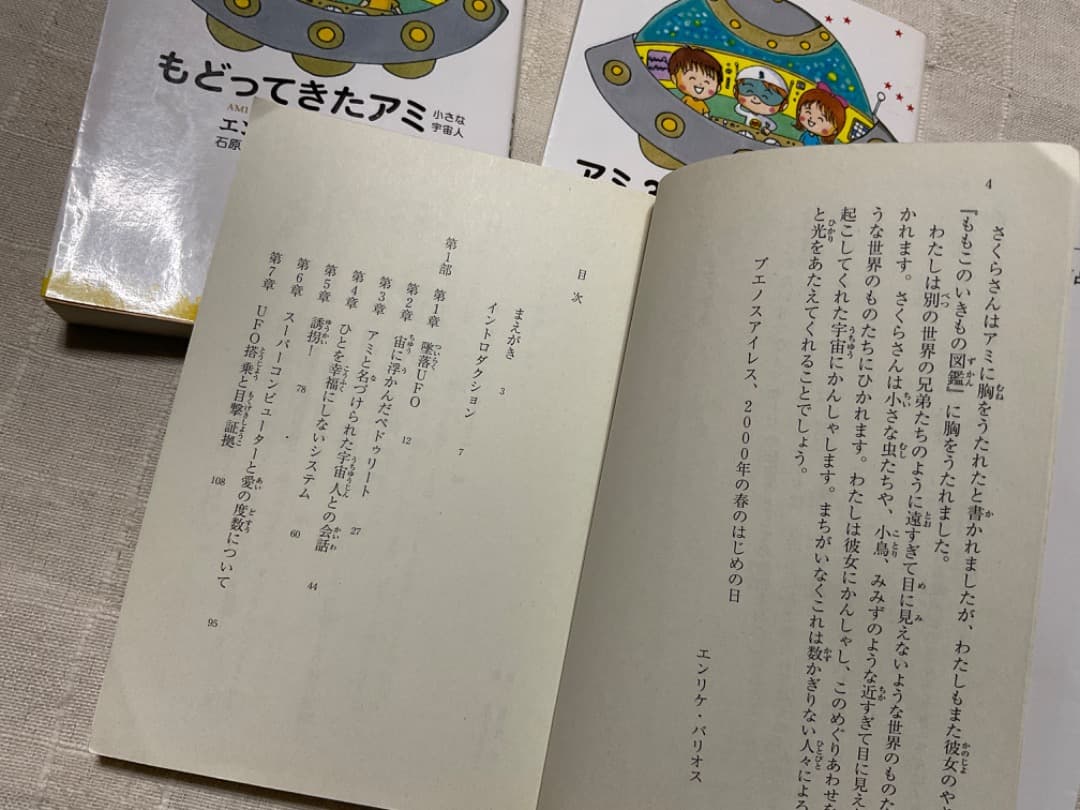 もどってきたアミ 小さな宇宙人
AMI
エン
石原
アミ 3
4
さくらさんはアミに胸をうたれたと書かれましたが、わたしもまた彼女のや
『ももこのいきもの図鑑』に胸をうたれました。
わたしは別の世界の兄弟たちのように遠すぎて目に見えないような世界のもの
かれます。さくらさんは小さな虫たちや、小鳥、みみずのような近すぎて目に見え
うな世界のものたちにひかれます。わたしは彼女にかんしゃし、このめぐりあわせを
起こしてくれた宇宙にかんしゃします。まちがいなくこれは数かぎりない人々による
と光をあたえてくれることでしょう。
ブエノスアイレス、2000年の春のはじめの日
エンリケ・バリオス
目次
まえがき 3
イントロダクション 7
第1部
第1章 墜落UFO 12
第2章 宙に浮かんだペドゥリート 27
第3章 アミと名づけられた宇宙人との会話 44
第4章 ひとを幸福にしないシステム 60
第5章 誘拐! 78
第6章 スーパーコンピューターと愛の度数について 95
第7章 UFO搭乗と目撃証拠 108